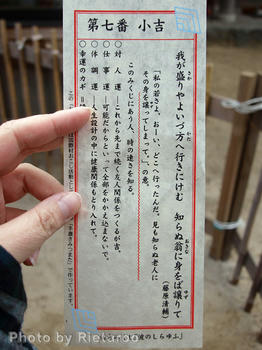 第七番 小吉
我が盛りやいづ方へ行きにけむ 知らぬ翁に身をば譲りて
(藤原清輔)
「私の若さよ、おーい、どこへ行ったんだ。見も知らぬ老人に
その身を譲ってしまって。」の意。
このみくじにあう人、時の速さを知る。
○対人運―これから先まで続く友人関係をつくるが吉。
○仕事運―可能だからといって全部をかかえ込まないで。
○体調運―人生設計の中に健康関係もとり入れて。
○幸運のカギ
Photo by Rietaroo